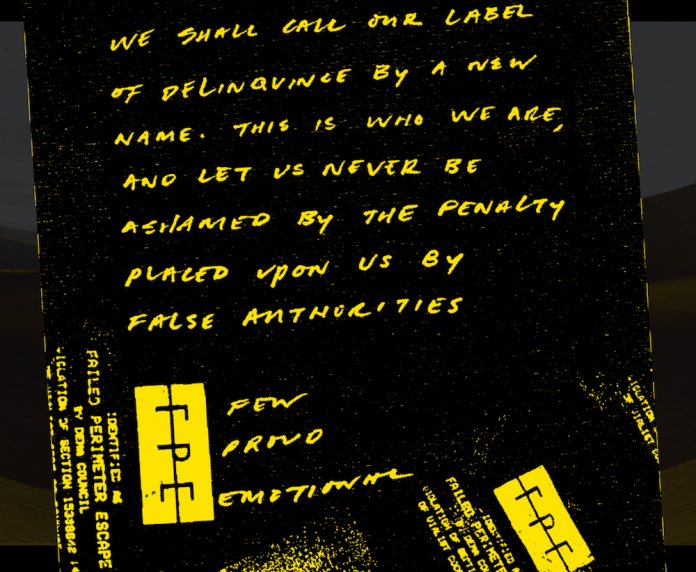 WE SHALL CALL OUR LABEL
OF DELINQUINCE BY A NEW
NAME. THIS IS WHO WE ARE,
AND LET US NEVER BE
ASHAMED BY THE PENALTY
PLACED UPON US BY
FALSE AUTHORITIES
FPE
FEW
PROUD
EMOTIONAL
IDENTIFIED AS
FAILED PERIMETER ESCAPE
BY DEMA COUNCIL
VIOLATION OF SECTION
IDENTIFIED
FAILED PERIMETER
BY DEMA COUNCIL
VIOLATION OF
OF VIALIST
FPE
VIOLATION
OF VIALIST